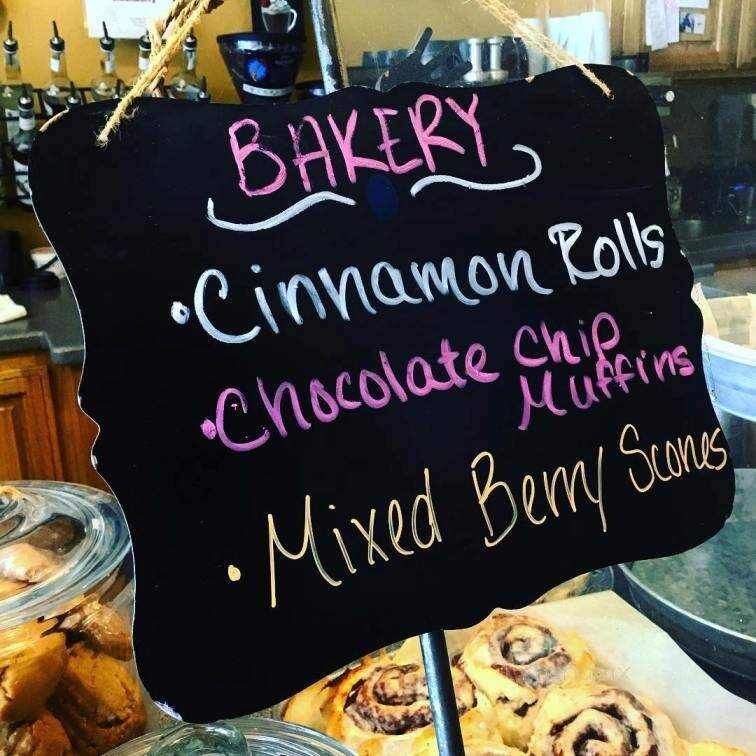 BAKERY
• Cinnamon Rolls
• Chocolate Chip
Muffins
• Mixed Berry Scones